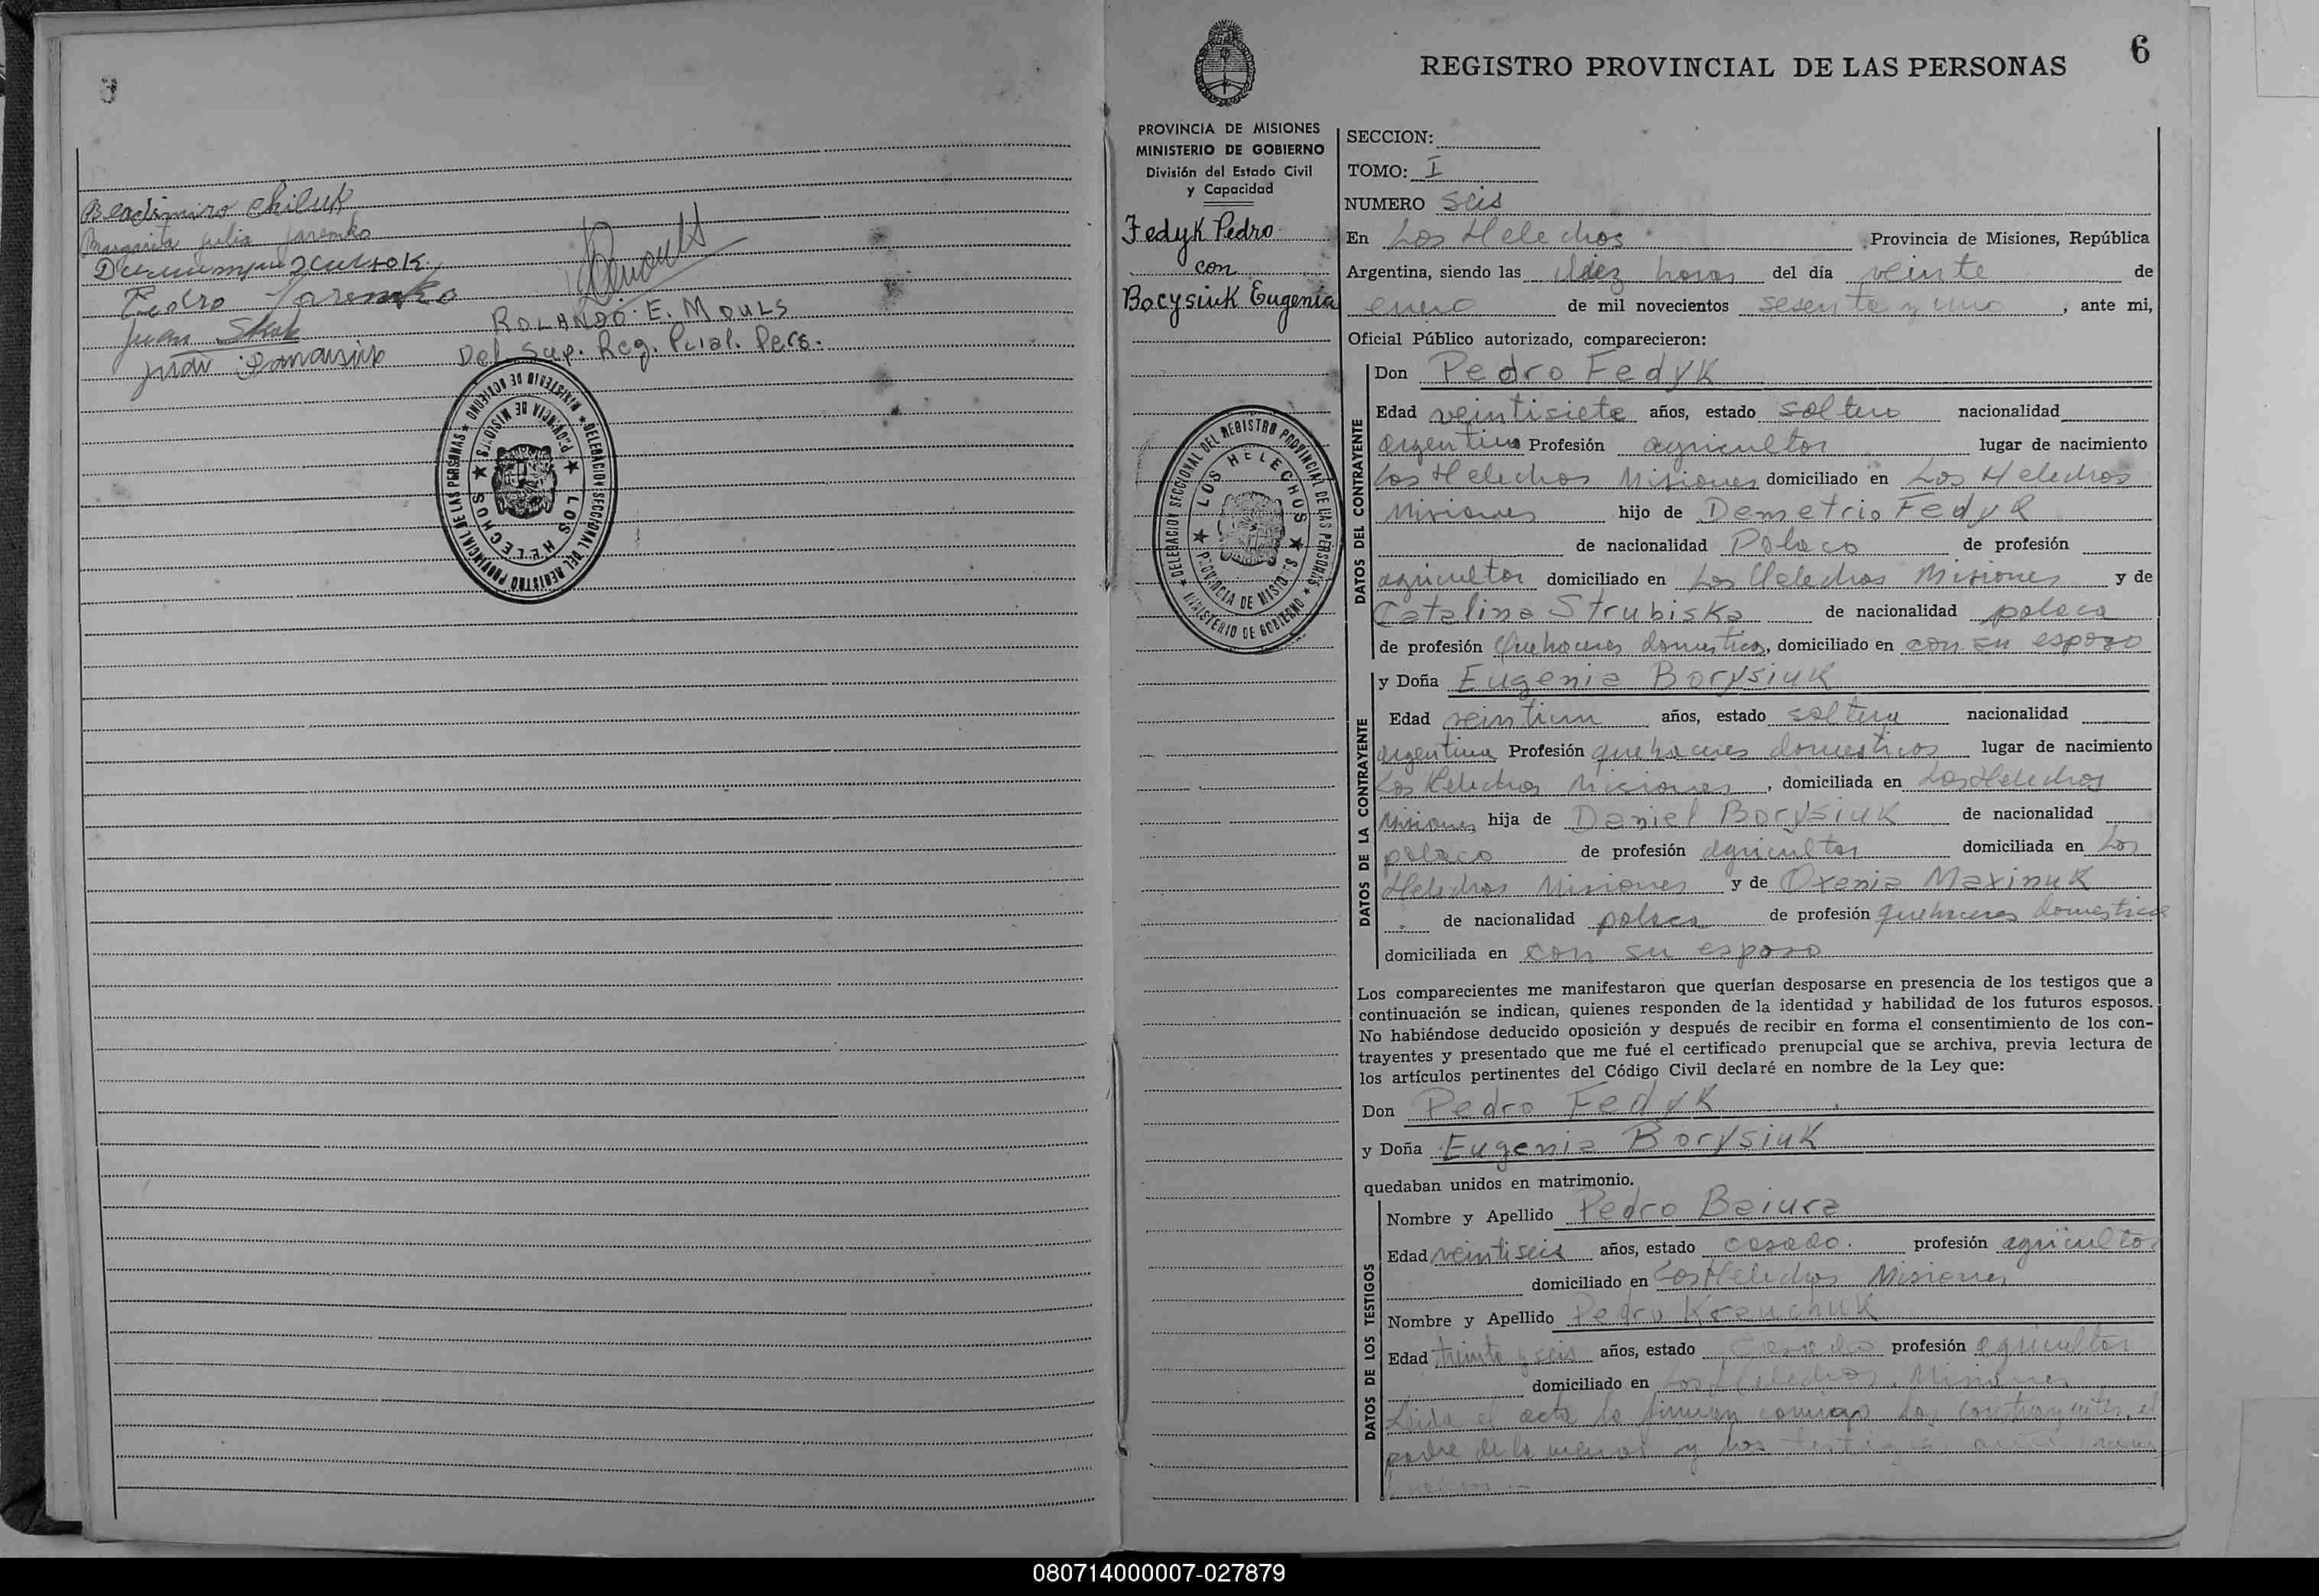 Bladimiro Chiluk
Margarita Julia Jaremko
Pedro Jaremko
Juan Skub
ROLANDO E. MOULS
Del Sup. Reg. Pcial. Pers.
DELEGACION SECCIONAL DEL REGISTRO PROVINCIAL DE LAS PERSONAS
MINISTERIO DE GOBIERNO
PROVINCIA DE MISIONES
LOS HELECHOS
6
REGISTRO PROVINCIAL DE LAS PERSONAS
PROVINCIA DE MISIONES
MINISTERIO DE GOBIERNO
División del Estado Civil
y Capacidad
Fedyk Pedro
con
Borysiuk Eugenia
DELEGACION SECCIONAL DEL REGISTRO PROVINCIAL DE LAS PERSONAS
MINISTERIO DE GOBIERNO
LOS HELECHOS
PROVINCIA DE MISIONES
SECCION:
TOMO: I
NUMERO Seis
En Los Helechos Provincia de Misiones, República
Argentina, siendo las diez horas del día veinte de
enero de mil novecientos sesenta y uno, ante mi,
Oficial Público autorizado, comparecieron:
DATOS DEL CONTRAYENTE
Don Pedro Fedyk
Edad veintisiete años, estado soltero nacionalidad
argentino Profesión agricultor lugar de nacimiento
Los Helechos Misiones domiciliado en Los Helechos
Misiones hijo de Demetrio Fedyk
de nacionalidad Polaco de profesión
agricultor domiciliado en Los Helechos Misiones y de
Catalina Strubiska de nacionalidad polaca
de profesión Quehaceres domesticos, domiciliado en con su esposo
DATOS DE LA CONTRAYENTE
y Doña Eugenia Borysiuk
Edad veintiun años, estado soltera nacionalidad
argentina Profesión quehaceres domesticos lugar de nacimiento
Los Helechos Misiones, domiciliada en Los Helechos
Misiones hija de Daniel Borysiuk de nacionalidad
polaco de profesión agricultor domiciliada en Los
Helechos Misiones y de Oxenia Maxinuk
de nacionalidad polaca de profesión quehaceres domesticos
domiciliada en con su esposo
Los comparecientes me manifestaron que querían desposarse en presencia de los testigos que a
continuación se indican, quienes responden de la identidad y habilidad de los futuros esposos.
No habiéndose deducido oposición y después de recibir en forma el consentimiento de los con-
trayentes y presentado que me fué el certificado prenupcial que se archiva, previa lectura de
los artículos pertinentes del Código Civil declaré en nombre de la Ley que:
Don Pedro Fedyk
y Doña Eugenia Borysiuk
quedaban unidos en matrimonio.
DATOS DE LOS TESTIGOS
Nombre y Apellido Pedro Baiura
Edad veintiseis años, estado casado. profesión agricultor
domiciliado en Los Helechos Misiones
Nombre y Apellido Pedro Krenchuk
Edad treinta y seis años, estado casado profesión agricultor
domiciliado en Los Helechos, Misiones
Leida el acta la firman conmigo los contrayentes, el
padre de la menor y los testigos
080714000007-027879